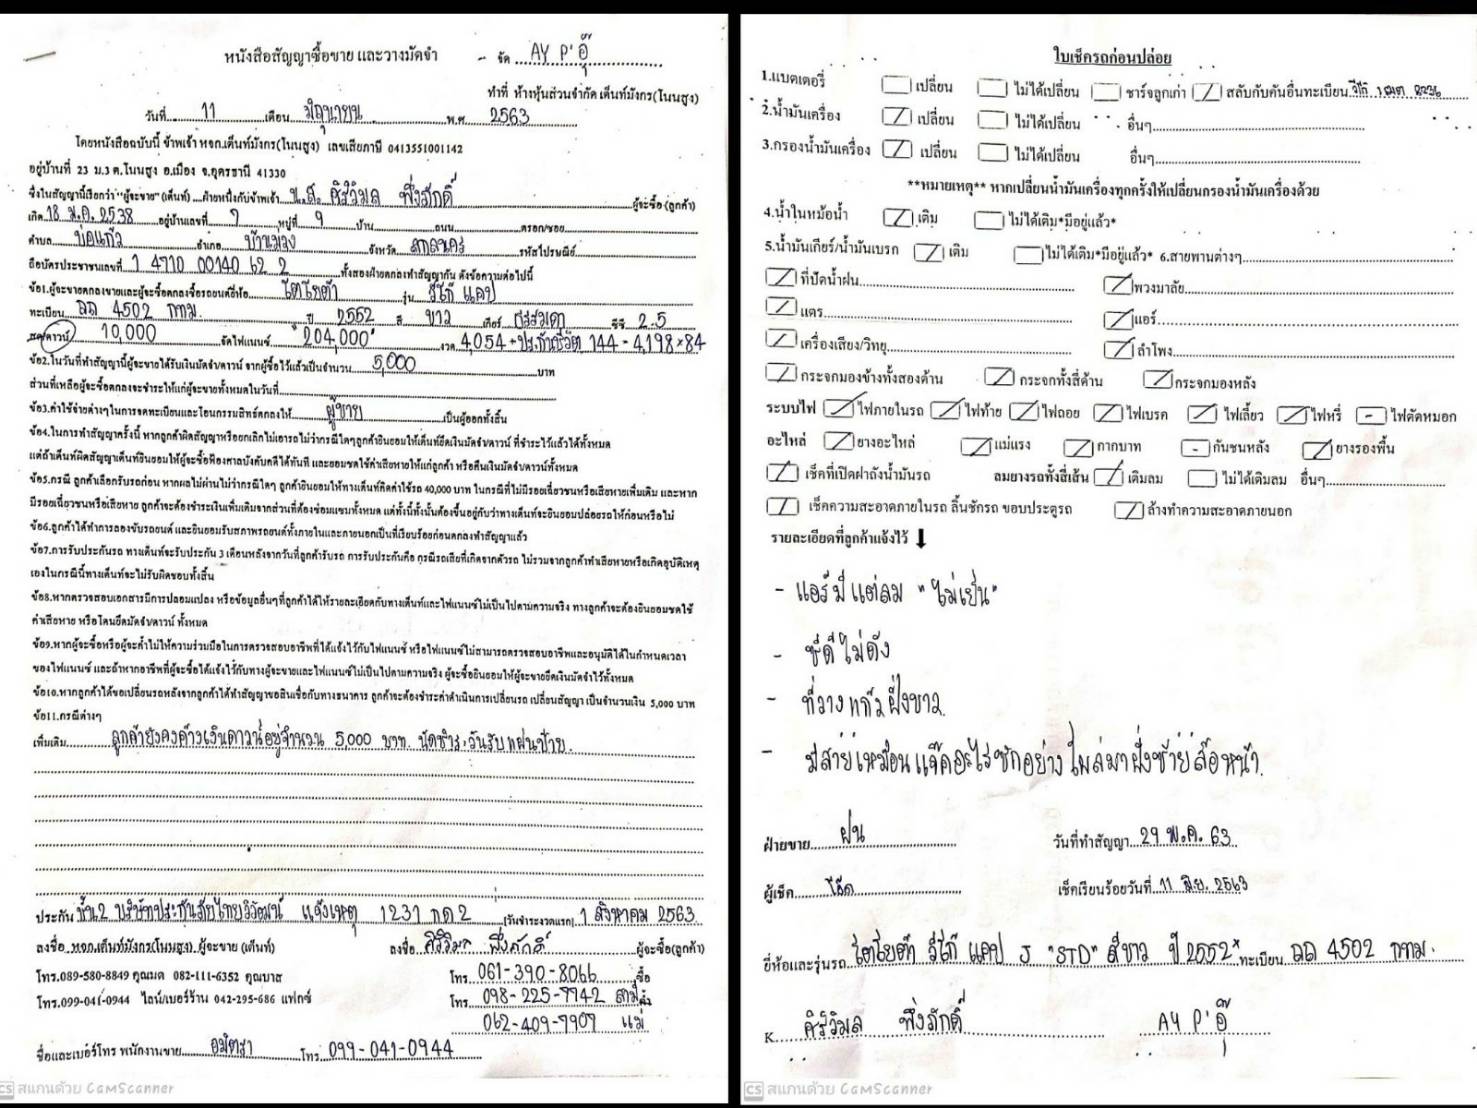 หนังสือสัญญาซื้อขาย และวางมัดจำ
- จัด AY P'อุ๊
ทำที่ ห้างหุ้นส่วนจำกัด เต็นท์มังกร(โนนสูง)
วันที่ 11 เดือน มิถุนายน พ.ศ. 2563
โดยหนังสือฉบับนี้ ข้าพเจ้า หจก.เต็นท์มังกร(โนนสูง) เลขเสียภาษี 0413551001142
อยู่บ้านที่ 23 ม.3 ต.โนนสูง อ.เมือง จ.อุดรธานี 41330
ซึ่งในสัญญานี้เรียกว่า "ผู้จะขาย" (เต็นท์) ....ฝ่ายหนึ่งกับข้าพเจ้า น.ส. ศิริวิมล พึ่งภักดิ์ ผู้จะซื้อ (ลูกค้า)
เกิด 18 ม.ค. 2538 อยู่บ้านเลขที่ 7 หมู่ที่ 9 บ้าน ถนน ตรอก/ซอย
ตำบล บ่อแก้ว อำเภอ บ้านม่วง จังหวัด สกลนคร รหัสไปรษณีย์
ถือบัตรประชาชนเลขที่ 1 4710 00140 62 2 ทั้งสองฝ่ายตกลงทำสัญญากัน ดังข้อความต่อไปนี้
ข้อ1.ผู้จะขายตกลงขายและผู้จะซื้อตกลงซื้อรถยนต์ยี่ห้อ โตโยต้า รุ่น วีโก้ แคป
ทะเบียน ฌฌ 4502 กทม. ปี 2552 สี ขาว เกียร์ ธรรมดา ซีซี 2.5
สด/ดาวน์ 10,000 จัดไฟแนนซ์ 204,000 งวด 4,054 + ประกันชีวิต 144 = 4,198 x 84
ข้อ2.ในวันที่ทำสัญญานี้ผู้จะขายได้รับเงินมัดจำ/ดาวน์ จากผู้ซื้อไว้แล้วเป็นจำนวน 5,000 บาท
ส่วนที่เหลือผู้จะซื้อตกลงจะชำระให้แก่ผู้จะขายทั้งหมดในวันที่
ข้อ3.ค่าใช้จ่ายต่างๆในการจดทะเบียนและโอนกรรมสิทธิ์ตกลงให้ ผู้ขาย เป็นผู้ออกทั้งสิ้น
ข้อ4.ในการทำสัญญาครั้งนี้ หากลูกค้าผิดสัญญาหรือยกเลิกไม่เอารถ ไม่ว่ากรณีใดๆลูกค้ายินยอมให้เต็นท์ยึดเงินมัดจำ/ดาวน์ ที่ชำระไว้แล้วได้ทั้งหมด
แต่ถ้าเต็นท์ผิดสัญญาเต็นท์ยินยอมให้ผู้จะซื้อฟ้องศาลบังคับคดีได้ทันที และยอมชดใช้ค่าเสียหายให้แก่ลูกค้า หรือคืนเงินมัดจำ/ดาวน์ทั้งหมด
ข้อ5.กรณี ลูกค้าเลือกรับรถก่อน หากผลไม่ผ่านไม่ว่ากรณีใดๆ ลูกค้ายินยอมให้ทางเต็นท์คิดค่าใช้รถ 40,000 บาท ในกรณีที่ไม่มีรอยเฉี่ยวชนหรือเสียหายเพิ่มเติม และหาก
มีรอยเฉี่ยวชนหรือเสียหาย ลูกค้าจะต้องชำระเงินเพิ่มเติมจากส่วนที่ต้องซ่อมแซมทั้งหมด แต่ทั้งนี้ทั้งนั้นต้องขึ้นอยู่กับว่าทางเต็นท์จะยินยอมปล่อยรถให้ก่อนหรือไม่
ข้อ6.ลูกค้าได้ทำการลองขับรถยนต์ และยินยอมรับสภาพรถยนต์ทั้งภายในและภายนอกเป็นที่เรียบร้อยก่อนตกลงทำสัญญาแล้ว
ข้อ7.การรับประกันรถ ทางเต็นท์จะรับประกัน 3 เดือนหลังจากวันที่ลูกค้ารับรถ การรับประกันคือ กรณีรถเสียที่เกิดจากตัวรถ ไม่รวมจากลูกค้าทำเสียหายหรือเกิดอุบัติเหตุ
เองในกรณีนี้ทางเต็นท์จะไม่รับผิดชอบทั้งสิ้น
ข้อ8.หากตรวจสอบเอกสารมีการปลอมแปลง หรือข้อมูลอื่นๆที่ลูกค้าได้ให้รายละเอียดกับทางเต็นท์และไฟแนนซ์ไม่เป็นไปตามความจริง ทางลูกค้าจะต้องยินยอมชดใช้
ค่าเสียหาย หรือโดนยึดมัดจำ/ดาวน์ ทั้งหมด
ข้อ9.หากผู้จะซื้อหรือผู้จะค้ำไม่ให้ความร่วมมือในการตรวจสอบอาชีพที่ได้แจ้งไว้กับไฟแนนซ์ หรือไฟแนนซ์ไม่สามารถตรวจสอบอาชีพและอนุมัติได้ในกำหนดเวลา
ของไฟแนนซ์ และถ้าหากอาชีพที่ผู้จะซื้อได้แจ้งไว้กับทางผู้จะขายและไฟแนนซ์ไม่เป็นไปตามความจริง ผู้จะซื้อยินยอมให้ผู้จะขายยึดเงินมัดจำไว้ทั้งหมด
ข้อ10.หากลูกค้าได้ขอเปลี่ยนรถหลังจากลูกค้าได้ทำสัญญาขอสินเชื่อกับทางธนาคาร ลูกค้าจะต้องชำระค่าดำเนินการเปลี่ยนรถ เปลี่ยนสัญญา เป็นจำนวนเงิน 5,000 บาท
ข้อ11.กรณีต่างๆ
เพิ่มเติม ลูกค้ายังคงค้างเงินดาวน์อยู่จำนวน 5,000 บาท. นัดชำระวันรับแผ่นป้าย.
ประกัน ชั้น2 บริษัทประกันภัยไทยวิวัฒน์ แจ้งเหตุ 1231 กด 2 (วันชำระงวดแรก) 1 สิงหาคม 2563
ลงชื่อ หจก.เต็นท์มังกร(โนนสูง) ผู้จะขาย (เต็นท์) ลงชื่อ ศิริวิมล พึ่งภักดิ์ ผู้จะซื้อ(ลูกค้า)
โทร.089-580-8849 คุณมด 082-111-6352 คุณบาส โทร. 061-390-8066 ซื้อ
โทร.099-041-0944 ไลน์/เบอร์ร้าน 042-295-686 แฟกซ์ โทร. 098-225-7742 สามี
062-409-7907 แม่
ชื่อและเบอร์โทร พนักงานขาย อมิตสา โทร. 099-041-0944
CS สแกนด้วย CamScanner
ใบเช็ครถก่อนปล่อย
1.แบตเตอรี่ เปลี่ยน ไม่ได้เปลี่ยน ชาร์จลูกเก่า สลับกับคันอื่นทะเบียน
2.น้ำมันเครื่อง เปลี่ยน ไม่ได้เปลี่ยน อื่นๆ
3.กรองน้ำมันเครื่อง เปลี่ยน ไม่ได้เปลี่ยน อื่นๆ
**หมายเหตุ** หากเปลี่ยนน้ำมันเครื่องทุกครั้งให้เปลี่ยนกรองน้ำมันเครื่องด้วย
4.น้ำในหม้อน้ำ เติม ไม่ได้เติม*มีอยู่แล้ว*
5.น้ำมันเกียร์/น้ำมันเบรก เติม ไม่ได้เติม*มีอยู่แล้ว* 6.สายพานต่างๆ
ที่ปัดน้ำฝน พวงมาลัย
แตร แอร์
เครื่องเสียง/วิทยุ ลำโพง
กระจกมองข้างทั้งสองด้าน กระจกทั้งสี่ด้าน กระจกมองหลัง
ระบบไฟ ไฟภายในรถ ไฟท้าย ไฟถอย ไฟเบรค ไฟเลี้ยว ไฟหรี่ ไฟตัดหมอก
อะไหล่ ยางอะไหล่ แม่แรง กากบาท กันชนหลัง ยางรองพื้น
เช็คที่เปิดฝาถังน้ำมันรถ ลมยางรถทั้งสี่เส้น เติมลม ไม่ได้เติมลม อื่นๆ
เช็คความสะอาดภายในรถ ลิ้นชักรถ ขอบประตูรถ ล้างทำความสะอาดภายนอก
รายละเอียดที่ลูกค้าแจ้งไว้ ⬇
- แอร์มีแต่ลม "ไม่เย็น"
- ซีดีไม่ดัง
- ที่วางแก้วฝั่งขวา.
- มีสายเหมือนแจ๊คอะไรซักอย่างโผล่มาฝั่งซ้ายล้อหน้า.
ฝ่ายขาย ฝน วันที่ทำสัญญา 29 พ.ค. 63
ผู้เช็ค เช็คเรียบร้อยวันที่ 11 มิ.ย. 2563
ยี่ห้อและรุ่นรถ โตโยต้า วีโก้ แคป J "STD" สีขาว ปี 2552 ทะเบียน ฌฌ 4502 กทม.
K ศิริวิมล พึ่งภักดิ์ AY P'อุ๊
CS สแกนด้วย CamScanner